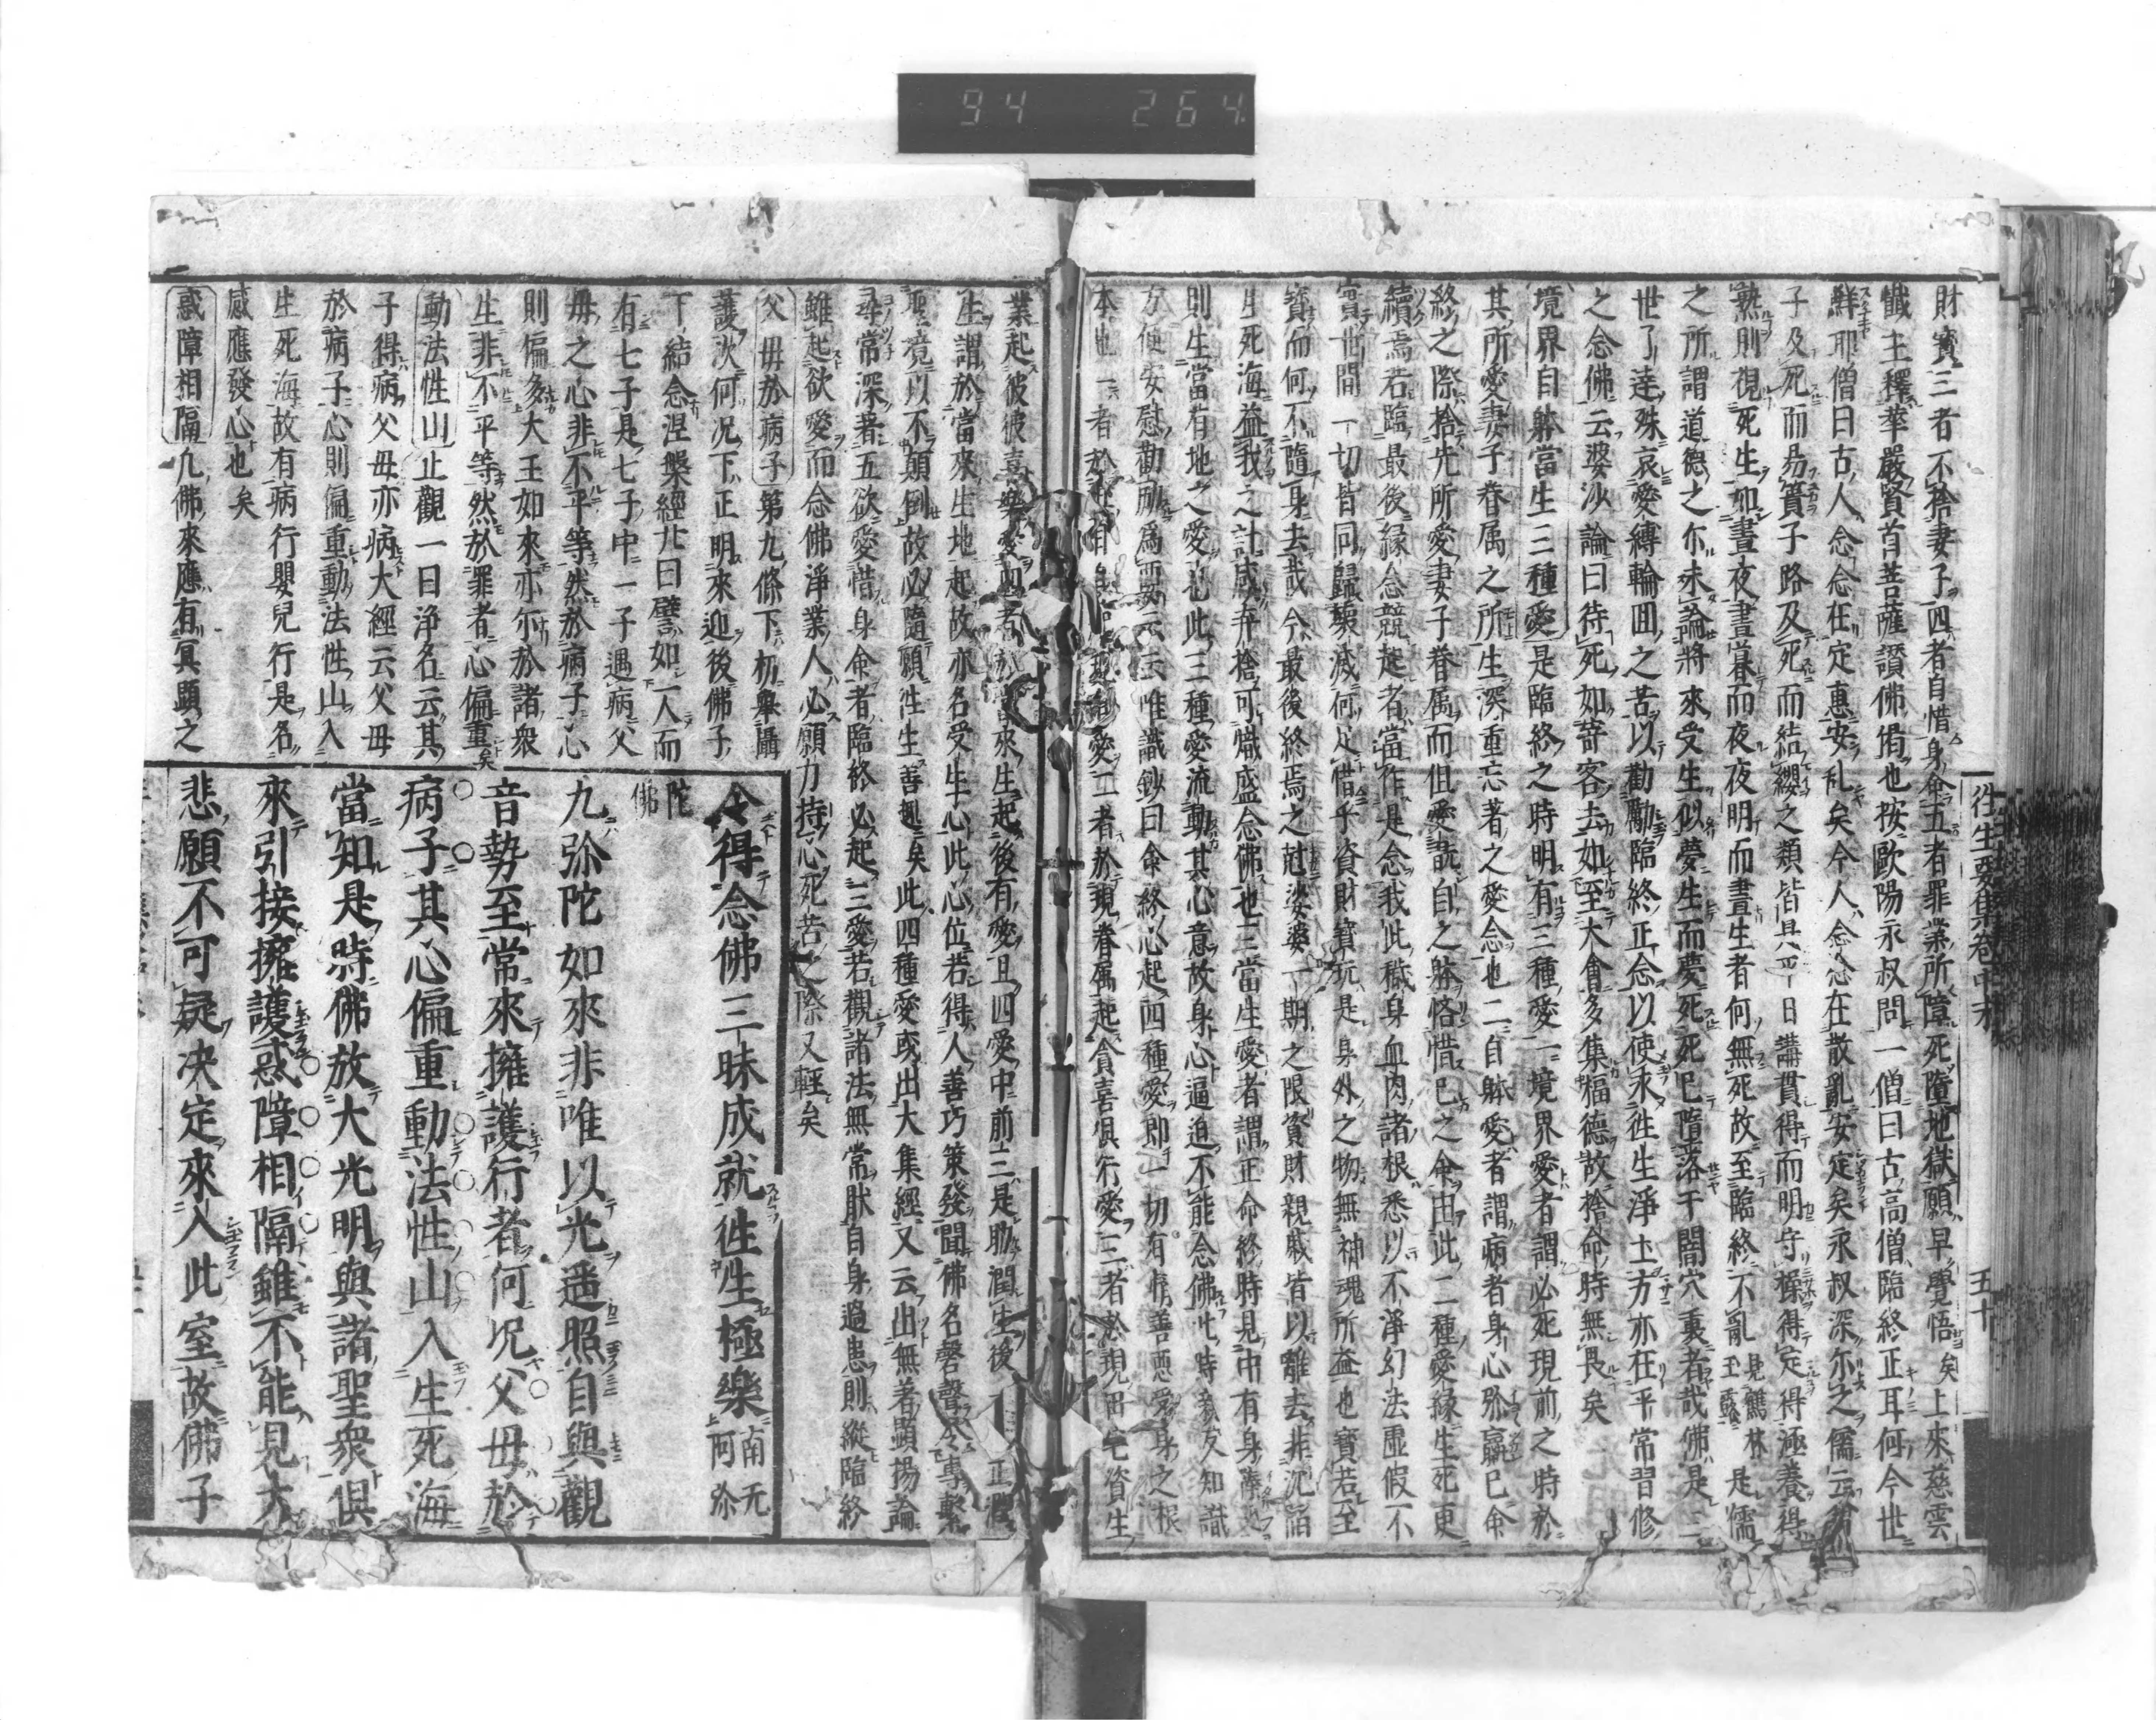 94 264
往生要集卷中末 五十
財寶三者不捨妻子四者自惜身命五者罪業所障死墮地獄願早覺悟矣上來慈雲
懺主釋華嚴賢首菩薩讚佛偈也按歐陽永叔問一僧曰古高僧臨終正耳何今世
鮮耶僧曰古人念念在定惠安乱矣今人念念在散亂安定矣永叔深尔之儒云
子及死而易簀子路及死而結纓之類皆是平日講貫得而明守操得定得極養
熟則視死生如晝夜晝暮而夜夜明而晝生者何無死故至臨終不亂見鶴林玉露是儒
之所謂道德之尔未論將來受生似夢生而夢死死已墮落千闇穴裏者哉佛是三
世了達殊哀愛縛輪囬之苦以勸勵臨終正念以使求徃生淨土方亦在平常習修
之念佛云婆沙論曰待死如寄客去如至大會多集福德故捨命時無畏矣
境界自躰當生三種愛是臨終之時明有三種愛一境界愛者謂必死現前之時於
其所愛妻子眷属之所生深重忘著之愛念也二自躰愛者謂病者身心弥羸已命
終之際捨先所愛妻子眷属而但愛翫自之躰悋惜已之命由此二種愛縁生死更
續焉若臨最後縁念競起者當作是念我此穢身血肉諸根悉以不淨幻法虛假不
實世間一切皆同歸壞滅何足惜乎資財寶玩是身外之物無神魂所益也寶若至
寶而何不隨身去哉今最後終焉之尅娑婆一期之限資財親戚皆以離去非沉陷
生死海益我之計慼弃捨可熾盛念佛也三當生愛者謂正命終時見中有身
則生當有地之愛也此三種愛流動其心意故身心逼迫不能念佛此時教友知識
方便安慰勸励爲要云云唯識鈔曰命終心起四種愛即一切有情善悪受身之根
本也一者於自身起愛二者於現眷属起貪喜俱行愛三者於現田宅資生
業起彼彼喜樂愛四者於當來生起後有愛且四愛中前三是助潤生後一正潤
生謂於當來生地起故亦名受生心此心位若得人善巧策發聞佛名磬聲令專繫
聖境以不顛倒故必隨願徃生善趣矣此四種愛或出大集經又云出無著顯揚論
尋常深著五欲愛惜身命者臨終必起三愛若觀諸法無常猒自身過患則縱臨終
雖起欲愛而念佛淨業人必願力持心死苦之際又輕矣
父毋於病子第九條下初舉攝
護次何况下正明來迎後佛子
下結念涅槃經廿曰譬如一人而
有七子是七子中一子遇病父
毋之心非不平等然於病子心
則偏多大王如來亦尓於諸衆
生非不平等然於罪者心偏重矣
動法性山止觀一曰浄名云其
子得病父毋亦病大經云父毋
於病子心則偏重動法性山入
生死海故有病行嬰兒行是名
感應發心也矣
惑障相隔凢佛來應有冥顯之
令得念佛三昧成就徃生極樂南无阿弥
陀佛
九弥陀如來非唯以光遥照自與觀
音勢至常來擁護行者何况父毋於
病子其心偏重動法性山入生死海
當知是時佛放大光明與諸聖衆俱
來引接擁護惑障相隔雖不能見大
悲願不可疑决定來入此室故佛子